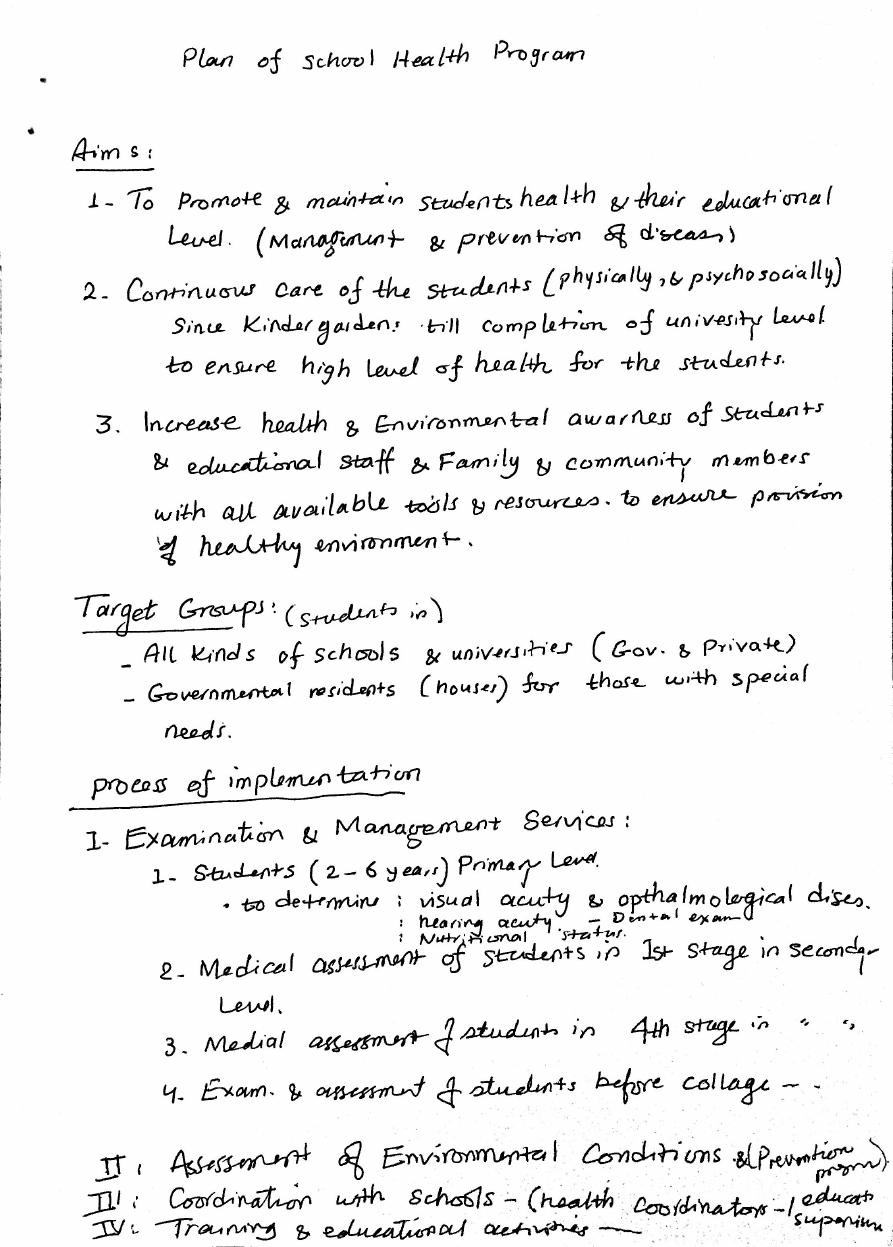 Plan of School Health Program
Aims:
1- To Promote & maintain students health & their educational
Level. (Management & prevention of diseases)
2- Continuous care of the students (physically, & psychosocially)
Since Kindergardens till completion of univesity Level
to ensure high level of health for the students.
3. Increase health & Environmental awarness of students
& educational staff & Family & community members
with all available tools & resources. to ensure provision
of healthy environment.
Target Groups: (students in)
- All Kinds of schools & universities (Gov. & Private)
- Governmental residents (houses) for those with special
needs.
process of implementation
I- Examination & Management Services:
1- Students (2-6 years) Primary Level.
• to determine : visual acuty & opthalmological dises.
: hearing acuty - Dental exam
: Nutritional status.
2- Medical assessment of students in 1st stage in seconday
Level.
3. Medial assessment of students in 4th stage in " "
4- Exam. & assessment of students before collage - .
II: Assessment of Environmental Conditions & (Prevention
progrm)
III: Coordination with schools - (health coordinators - / educat
superium
IV: Training & educational activities —